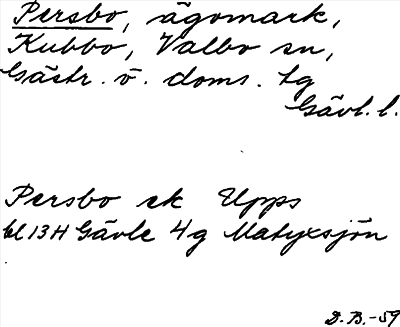 Persbo, ägomark,
Kubbo, Valbo sn,
Gästr. ö. doms. tg
Gävl. l.
Persbo ek Upps
bl 13H Gävle 4g Matyxsjön
D.B.-59